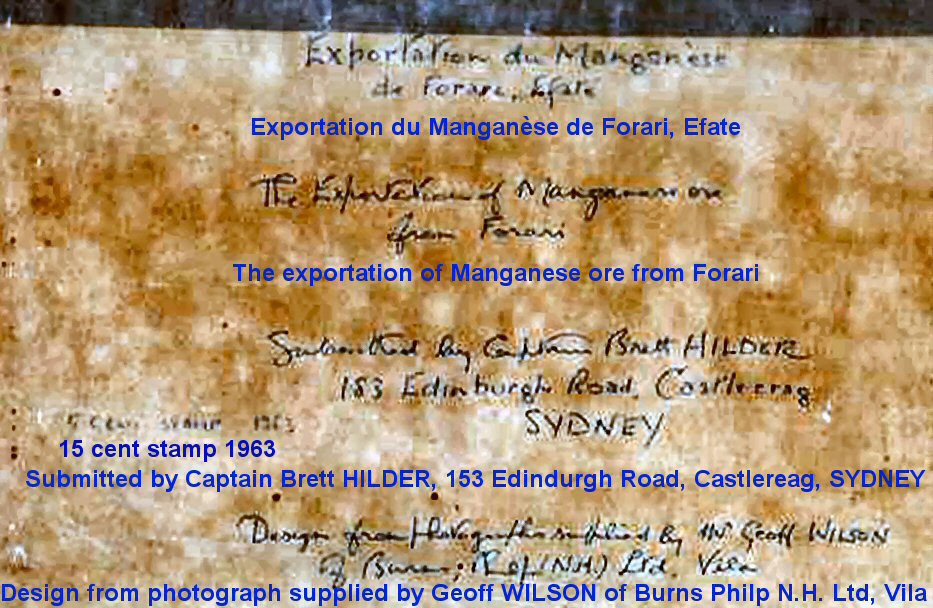 Exportation du Manganèse
de Forari, Efate
Exportation du Manganèse de Forari, Efate
The Exportation of Manganese ore
from Forari
The exportation of Manganese ore from Forari
Submitted by Captain Brett HILDER
153 Edinburgh Road, Castlecrag
CENT STAMP 1963
SYDNEY
15 cent stamp 1963
Submitted by Captain Brett HILDER, 153 Edindurgh Road, Castlereag, SYDNEY
Design from photographs supplied by Mr. Geoff WILSON
of Burns, Philp (N.H.) Ltd. Vila
Design from photograph supplied by Geoff WILSON of Burns Philp N.H. Ltd, Vila